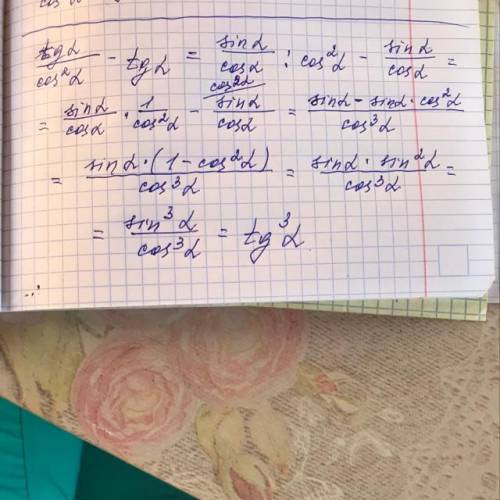 tgα/cos²α - tgα = sinα/cosα : cos²α - sinα/cosα =
= sinα/cosα · 1/cos²α - cos2α sinα/cosα = sinα - sinα · cos²α/cos³α
= sinα · (1 - cos²α)/cos³α = sinα · sin²α/cos³α =
= sin³α/cos³α = tg³α